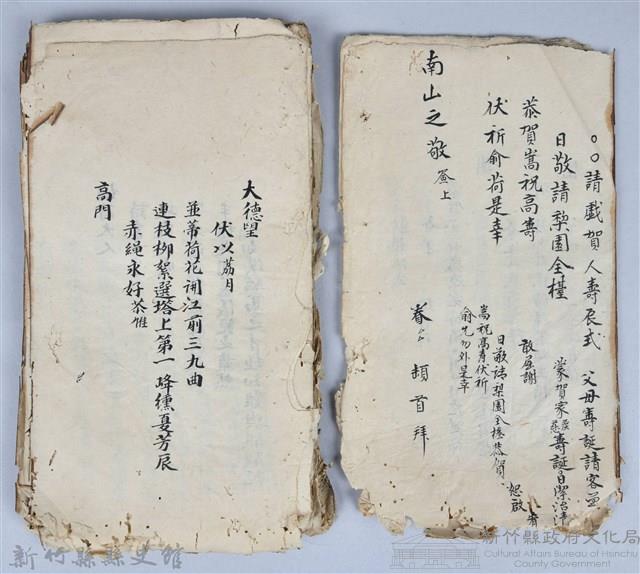 ○○請戲賀人壽辰式
父母壽誕請客並
日敬請梨園全檯
蒙賀家嚴慈壽誕
日潔治
恭賀嵩祝高壽
敢屈謝
恕啟
伏祈俞荷是幸
日敬請梨園全檯恭賀
嵩祝高壽伏祈
俞允勿外是幸
南山之敬
簽上
眷 頓首拜
大德望
伏以荔月
並蒂荷花開江前三九曲
連枝柳絮選塔上第一峰纁夏芳辰
赤繩永好恭惟
高門
新竹縣縣史館
新竹縣政府文化局
Cultural Affairs Bureau of Hsinchu
County Government